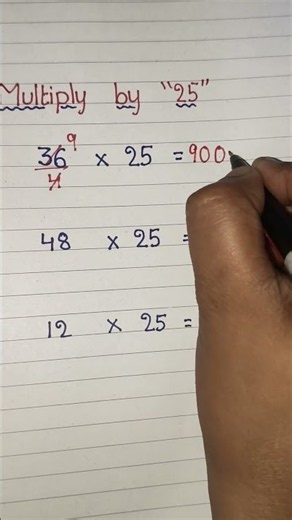 Multiply by "25"
36 9 x 25 = 900
4
48 x 25 =
12 x 25 =